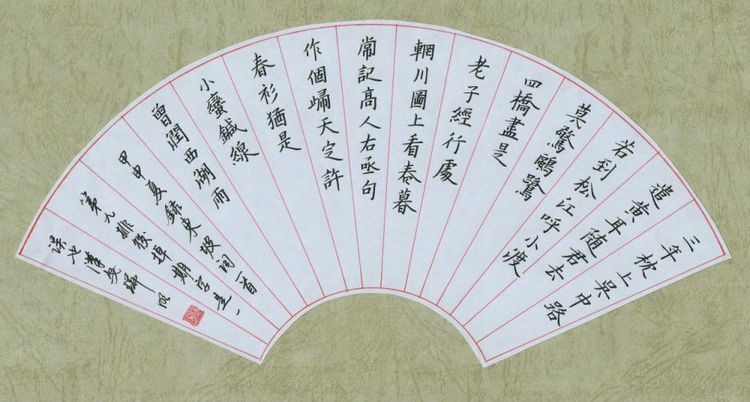 三年枕上吳中路
遣黃耳隨君去
若到松江呼小渡
莫驚鷗鷺
四橋盡是
老子經行處
輞川圖上看春暮
常記高人右丞句
作個歸天定許
春衫猶是
小蠻鍼線
曾潤西湖雨
甲申夏錄東坡詞首
第九排後掉期字
誤也